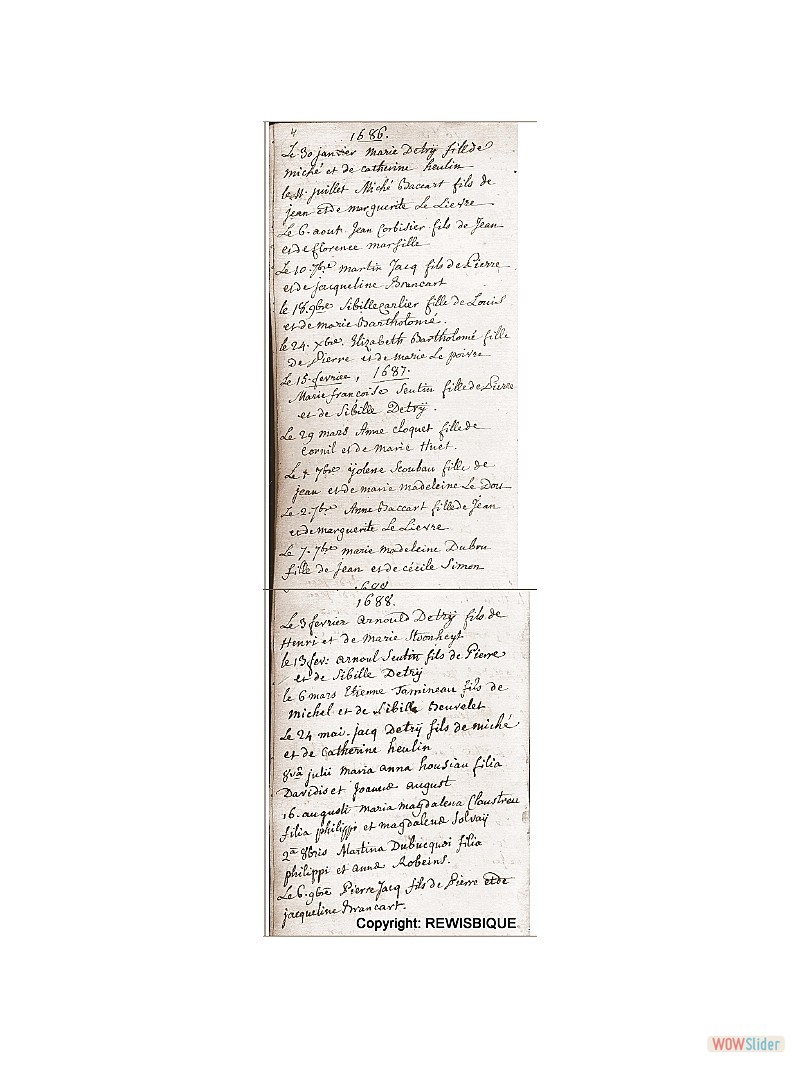 4
1686.
Le 30 janvier marie Detrÿ fille de
miché et de catherine heulin
le 11. juillet Miché Baccart fils de
jean et de marguerite Le Lievre
Le 6. aout Jean Corbisier fils de Jean
et de florence marsille
Le 10. 7bre martin Jacq fils de Pierre
et de jacqueline Brancart
le 18. 9bre Sibille carlier fille de Louis
et de marie Bartholomé.
le 24. xbre. Elizabeth Bartholomé fille
de Pierre et de marie Le poivre
Le 15. fevrier, 1687.
Marie françoise Seutin fille de Pierre
et de Sibille Detrÿ.
Le 29 mars Anne cloquet fille de
Cornil et de marie Huet.
Le 7bre ÿolene Scoubau fille de
jean et de marie madeleine Le Dou
Le 2. 7bre Anne Baccart fille de Jean
et de marguerite Le Lievre
Le 7. 7bre marie madeleine Dubru
fille de jean et de cécile Simon
1688.
Le 3 fevrier arnould Detrÿ fils de
Henri et de Marie Stoonheyt
le 13 fev: arnoul Seutin fils de Pierre
et de Sibille Detrÿ
le 6 mars Etienne Tamineau fils de
michel et de Sibille Beuvelet
Le 24 mai. jacq Detrÿ fils de miché
et de Catherine heulin
8va julii maria anna housiau filia
Davidis et Joannæ august
16. augusti maria magdalena Claustreu
filia philippi et magdalenæ Solvaÿ
2a 8bris Martina Dubucquoi filia
philippi et annæ Robeins.
Le 6. 9bre Pierre Jacq fils de Pierre et de
jacqueline Brancart.
Copyright: REWISBIQUE
WOWSlider